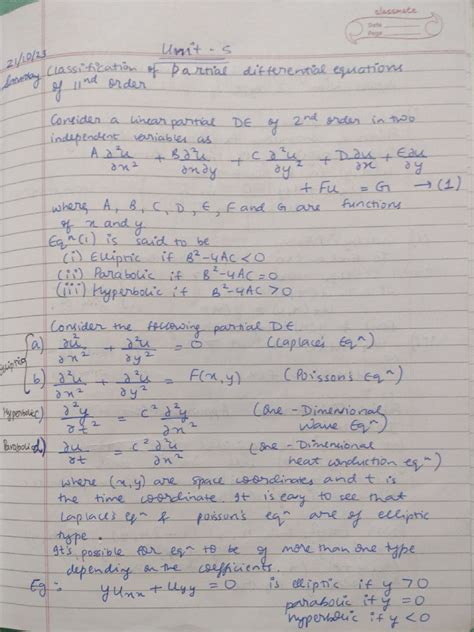 classmate
Date
Page
Unit - 5
21/10/23
Saturday
Classification of Partial differential equations
of IInd order
Consider a linear partial DE of 2nd order in two
independent variables as
A ∂²u/∂x² + B ∂²u/∂x∂y + C ∂²u/∂y² + D ∂u/∂x + E ∂u/∂y
+ Fu = G → (1)
where, A, B, C, D, E, F and G are functions
of x and y
Eqⁿ (1) is said to be
(i) Elliptic if B²-4AC < 0
(ii) Parabolic if B²-4AC = 0
(iii) Hyperbolic if B²-4AC > 0
Consider the following partial DE.
Elliptic
a) ∂²u/∂x² + ∂²u/∂y² = 0 (Laplace's Eqⁿ)
b) ∂²u/∂x² + ∂²u/∂y² = F(x,y) (Poisson's Eqⁿ)
Hyperbolic c) ∂²y/∂t² = c² ∂²y/∂x² (One-Dimensional
wave Eqⁿ)
Parabolic d) ∂u/∂t = c² ∂²u/∂x² (One-Dimensional
heat conduction eqⁿ)
where (x,y) are space coordinates and t is
the time coordinate. It is easy to see that
Laplace's eqⁿ & poisson's eqⁿ are of elliptic
type.
It's possible for eqⁿ to be of more than one type
depending on the coefficients.
Eg: yUxx + Uyy = 0 is elliptic if y > 0
parabolic if y = 0
hyperbolic if y < 0